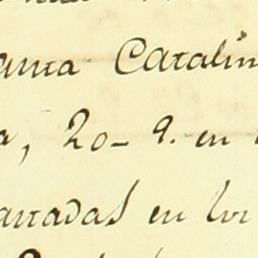 anta Catalin
a, 20_ 9. en
arradas en los